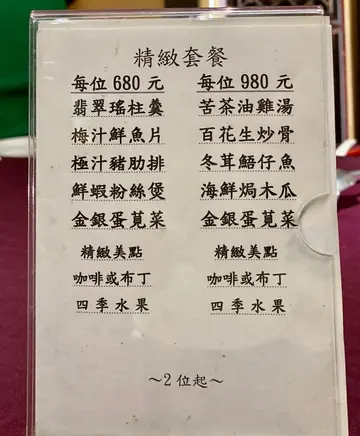 精緻套餐
每位 680 元 每位 980 元
翡翠瑤柱羹 苦茶油雞湯
梅汁鮮魚片 百花生炒骨
極汁豬肋排 冬茸鯃仔魚
鮮蝦粉絲煲 海鮮焗木瓜
金銀蛋莧菜 金銀蛋莧菜
精緻美點 精緻美點
咖啡或布丁 咖啡或布丁
四季水果 四季水果
～2 位起～